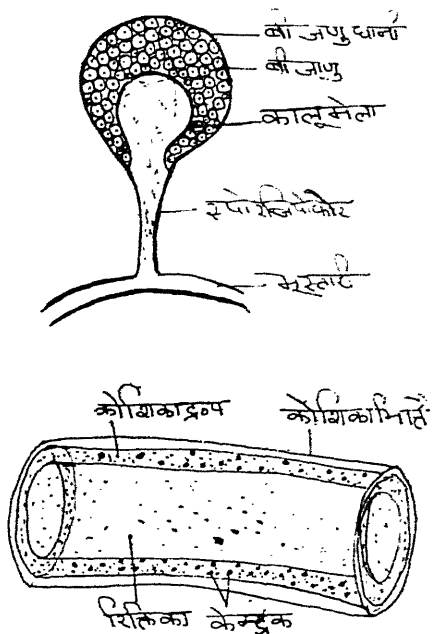 बीजाणुधानी
बीजाणु
कालूमेला
स्पोरेन्जियोफोर
भूस्तारी
कोशिकाद्रव्य
कोशिकाभित्ति
रिक्तिका केन्द्रक